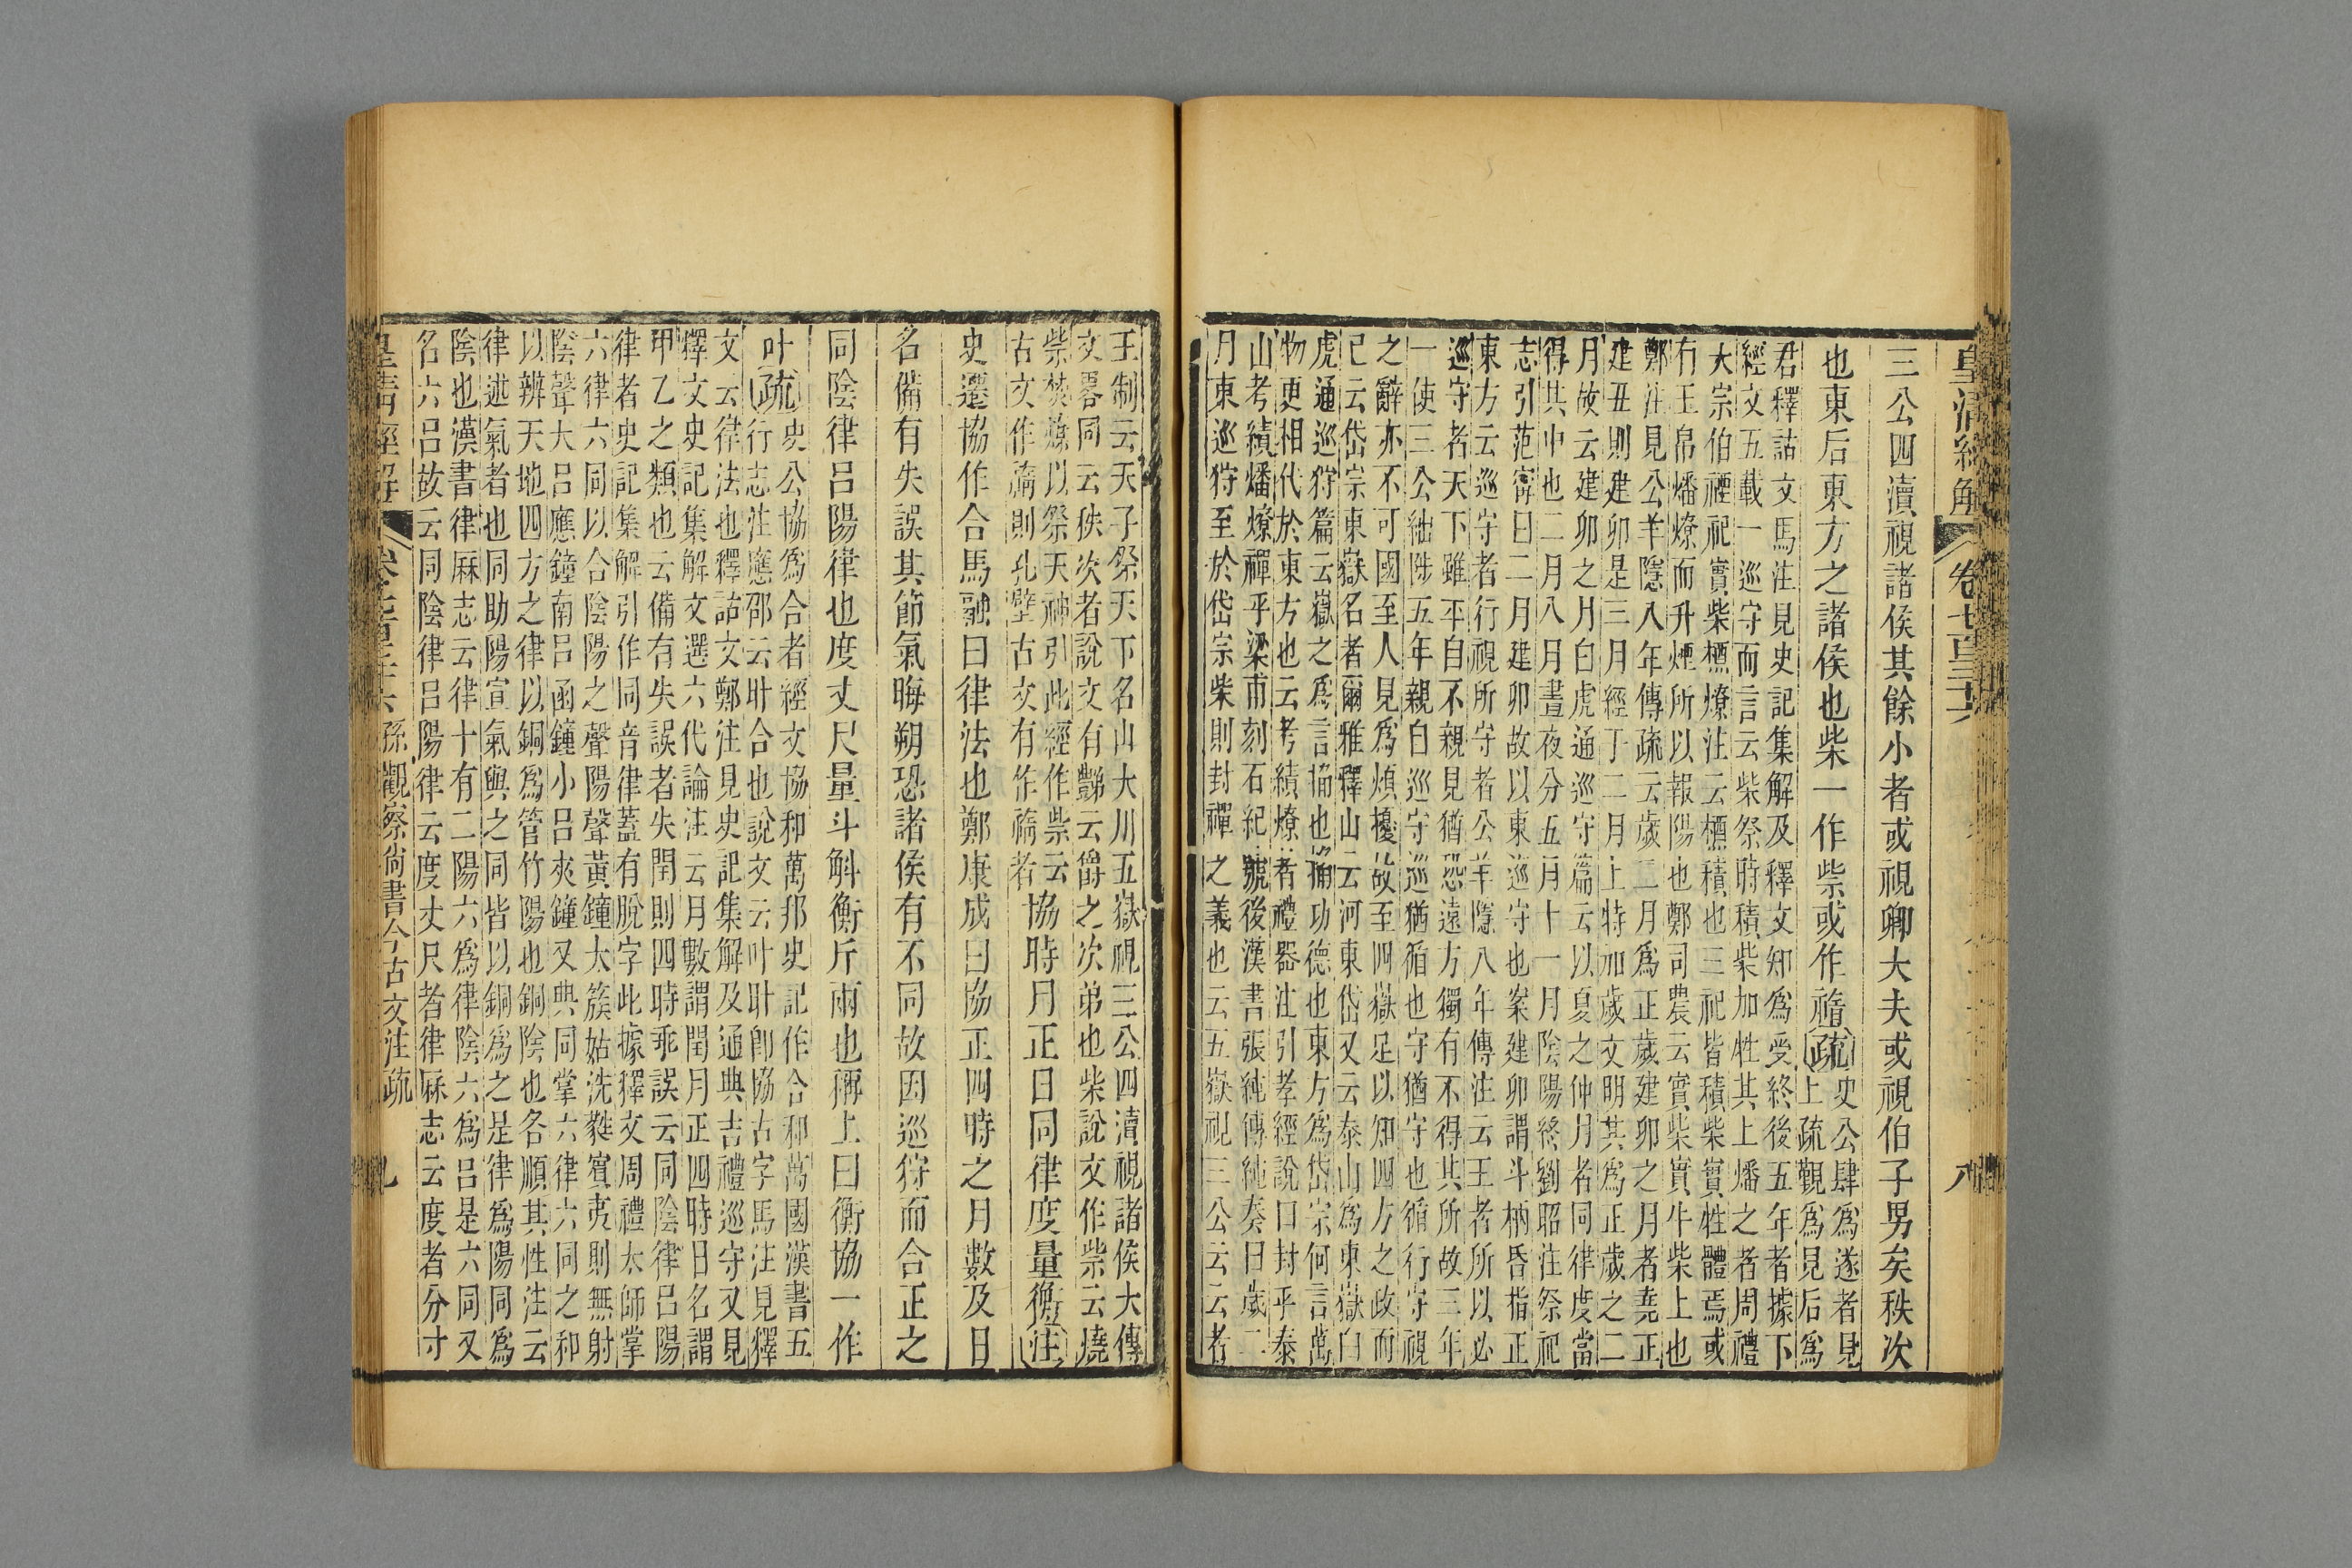 皇清經解 卷七百三十六 八
三公四瀆視諸侯其餘小者或視卿大夫或視伯子男矣秩次
也東后東方之諸侯也柴一作祡或作𥛱疏
史公肆爲遂者見
上疏覲爲見后爲
君釋詁文馬注見史記集解及釋文知爲受終後五年者據下
經文五載一巡守而言云柴祭時積柴加牲其上燔之者周禮
大宗伯禋祀實柴槱燎注云槱積也三祀皆積柴實牲體焉或
有玉帛燔燎而升煙所以報陽也鄭司農云實柴實牛柴上也
鄭注見公羊隱八年傳疏云歲二月爲正歲建卯之月者堯正
建丑則建卯是三月經于二月上特加歲文明其爲正歲之二
月故云建卯之月白虎通巡守篇云以夏之仲月者同律度當
得其中也二月八月晝夜分五月十一月陰陽終劉昭注祭祀
志引范甯曰二月建卯故以東巡守也案建卯謂斗柄昏指正
東方云巡守者行視所守者公羊隱八年傳注云王者所以必
巡守者天下雖平自不親見猶恐遠方獨有不得其所故三年
一使三公絀陟五年親自巡守巡猶循也守猶守也循行守視
之辭亦不可國至人見爲煩擾故至四嶽足以知四方之政而
已云岱宗東嶽名者爾雅釋山云河東岱又云泰山爲東嶽白
虎通巡狩篇云嶽之爲言捔也捔功德也東方爲岱宗何言萬
物更相代於東方也云考績燎者禮器注引孝經說曰封乎泰
山考績燔燎禪乎梁甫刻石紀號後漢書張純傳純奏曰歲二
月東巡狩至於岱宗柴則封禪之義也云五嶽視三公云云者
王制云天子祭天下名山大川五嶽視三公四瀆視諸侯大傳
文畧同云秩次者說文有豑云爵之次弟也柴說文作祡云燒
柴焚燎以祭天神引此經作祡云
古文作𥛱則孔壁古文有作𥛱者
協時月正日同律度量衡注
史遷協作合馬融曰律法也鄭康成曰協正四時之月數及日
名備有失誤其節氣晦朔恐諸侯有不同故因巡狩而合正之
同陰律呂陽律也度丈尺量斗斛衡斤兩也稱上曰衡協一作
叶疏
史公協爲合者經文協和萬邦史記作合和萬國漢書五
行志注應邵云叶合也說文云叶叶卽協古字馬注見釋
文云律法也釋詁文鄭注見史記集解及通典吉禮巡守又見
釋文史記集解文選六代論注云月數謂閏月正四時日名謂
甲乙之類也云備有失誤者失閏則四時乖誤云同陰律呂陽
律者史記集解引作同音律蓋有脫字此據釋文周禮太師掌
六律六同以合陰陽之聲陽聲黃鐘太簇姑洗蕤賓夷則無射
陰聲大呂應鐘南呂函鐘小呂夾鐘又典同掌六律六同之和
以辨天地四方之律以銅爲管竹陽也銅陰也各順其性注云
律述氣者也同助陽宣氣與之同皆以銅爲之是律爲陽同爲
陰也漢書律厤志云律十有二陽六爲律陰六爲呂是六同又
名六呂故云同陰律呂陽律云度丈尺者律厤志云度者分寸
皇清經解 卷七百三十六 孫觀察尙書今古文注疏 九